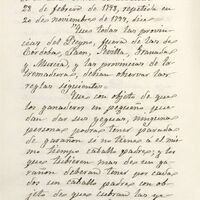 28 de febrero de 1793, repetida en
20 de noviembre de 1794, dice
"Que todas las provin-
cias del Reyno, fuera de las de
Cordoba, Jaen, Sevilla, Granada
y Murcia, y las provincias de la
Extremadura, debian observar las
reglas siguientes:
"Que con objeto de que
los ganaderos en pequeño que-
dan dar sus yeguas, ninguna
persona podra tener parada
de garañon si no tiene a el mis-
mo tiempo caballo padre, y la
que tubieren mas de un ga-
rañon deberan tener por cada
dos un caballo padre con ob-
jeto de que cubran las ye-